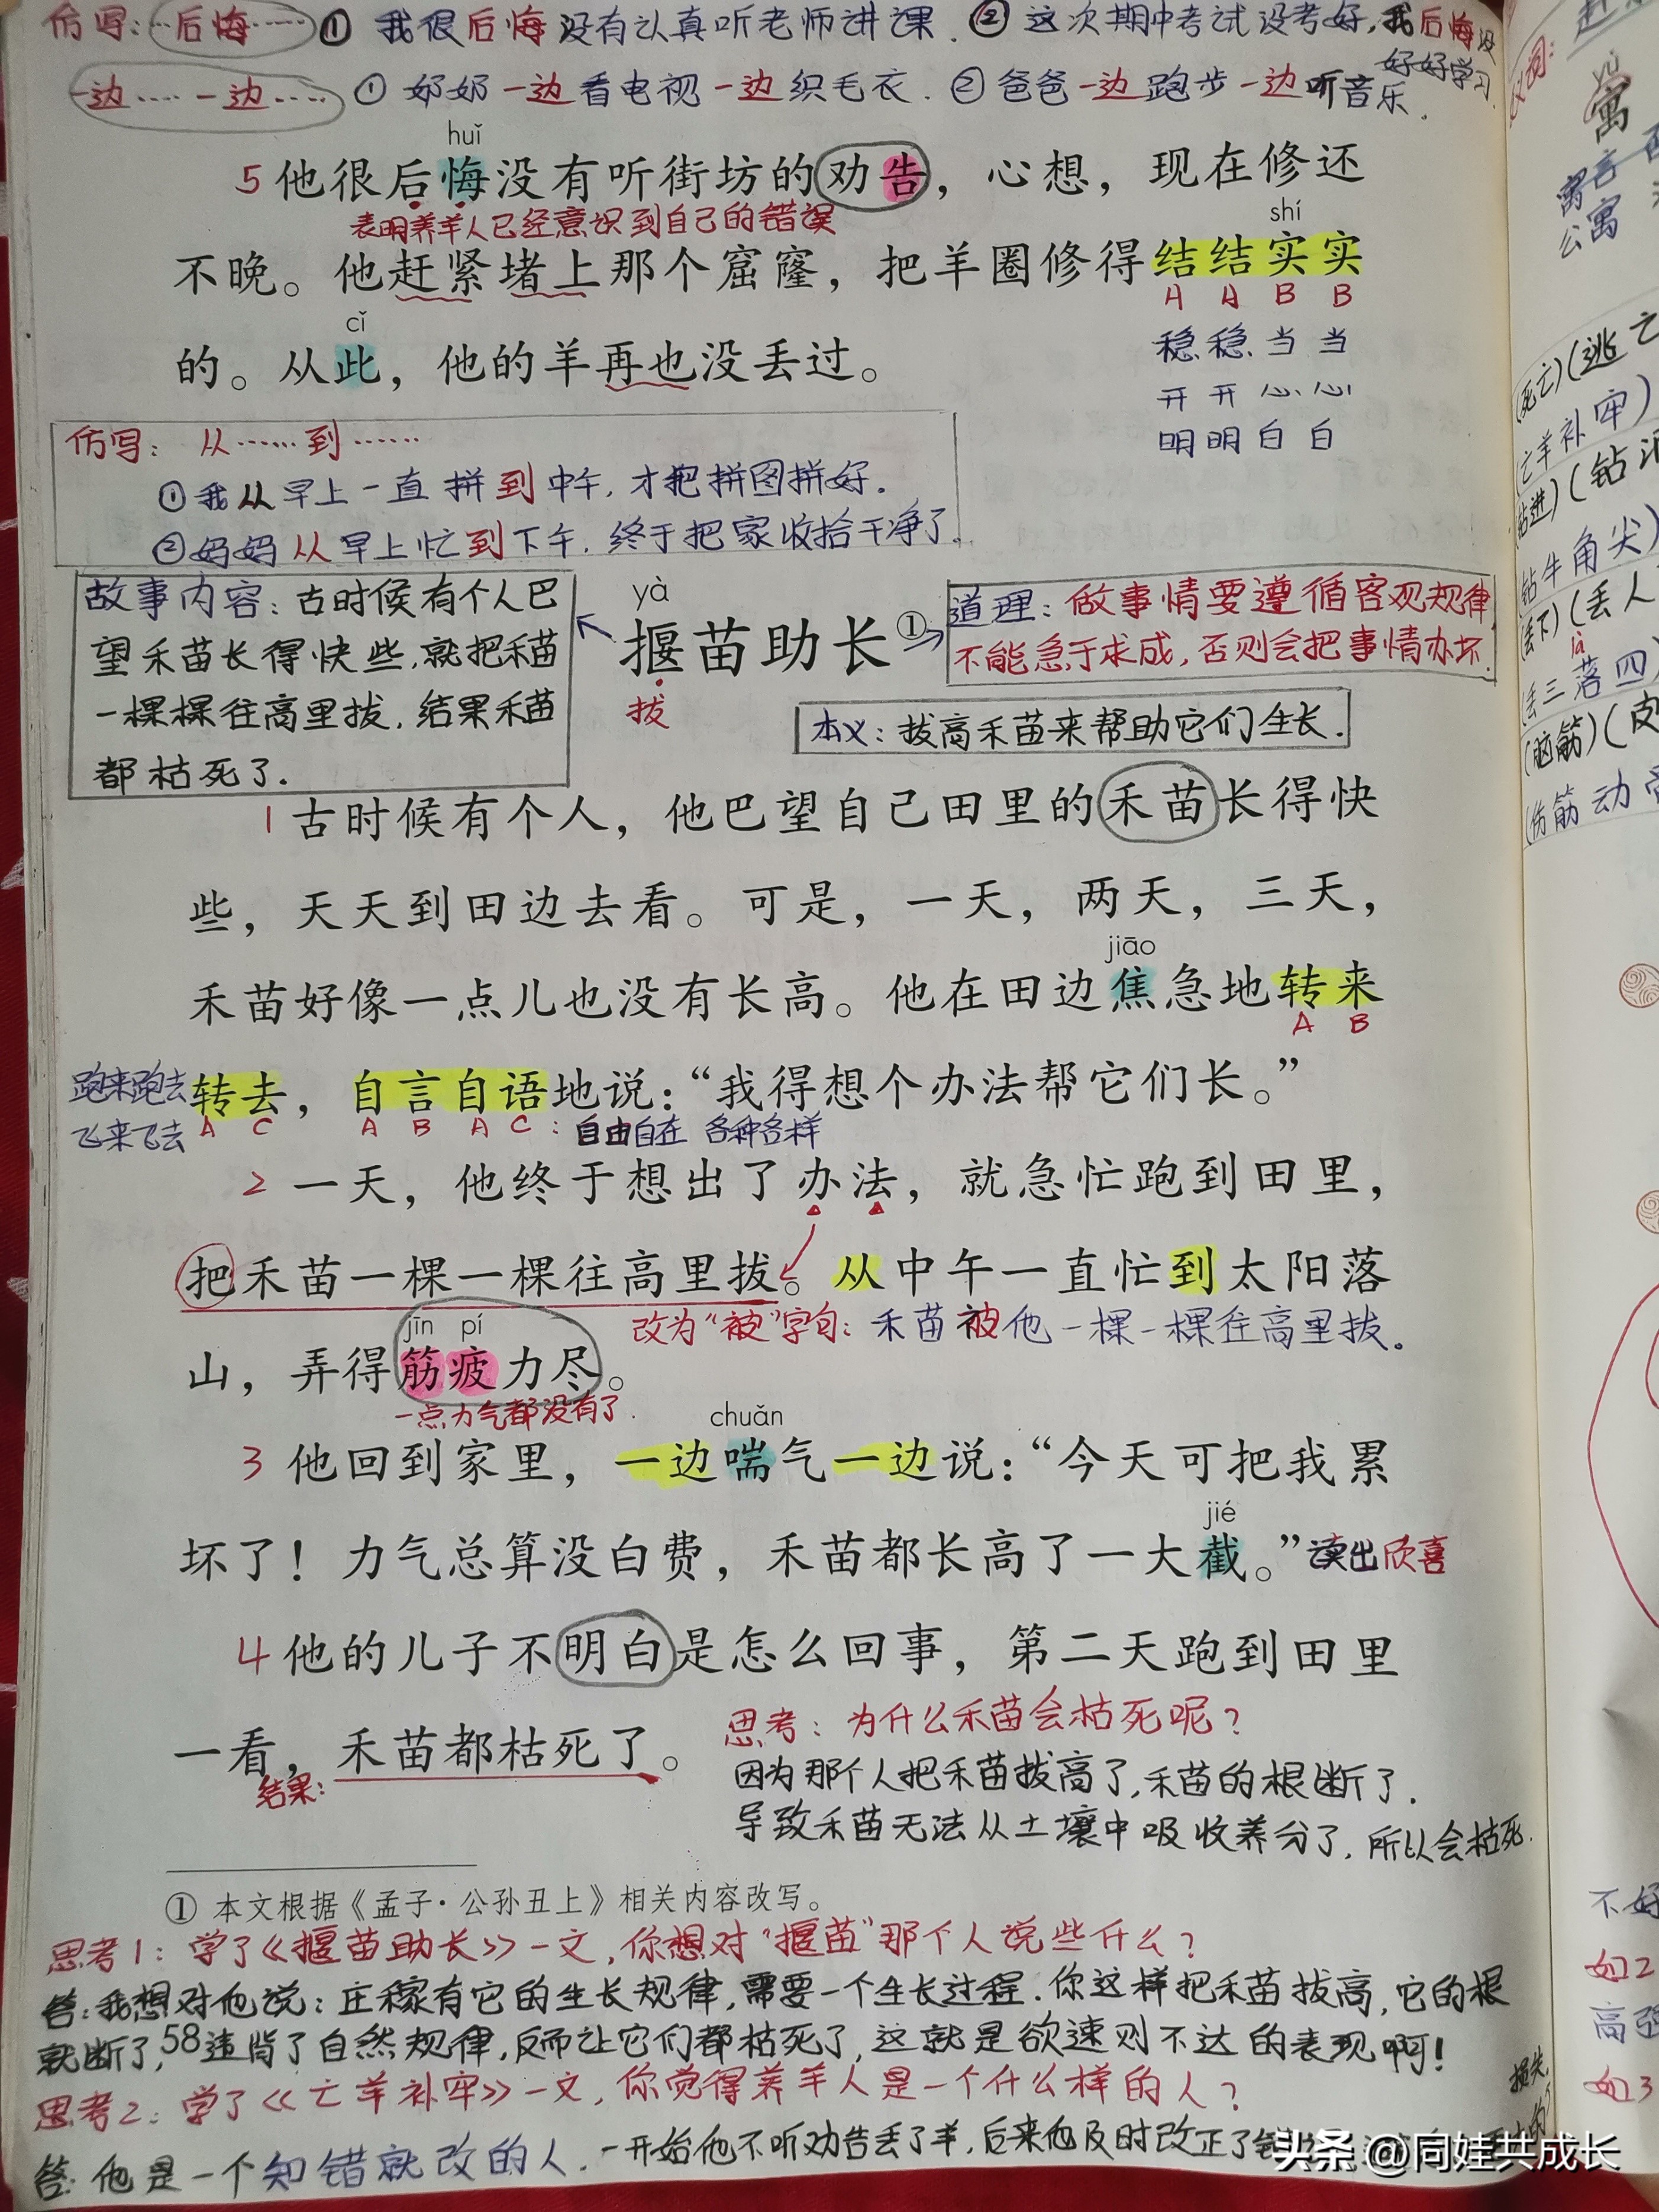 仿写：…后悔…… ① 我很后悔没有认真听老师讲课. ② 这次期中考试没考好,我后悔没
好好学习.
一边……一边…… ① 奶奶一边看电视一边织毛衣. ② 爸爸一边跑步一边听音乐.
huǐ
5 他很后悔没有听街坊的劝告，心想，现在修还
表明养羊人已经意识到自己的错误
shí
不晚。他赶紧堵上那个窟窿，把羊圈修得结结实实
A A B B
cǐ
稳稳当当
的。从此，他的羊再也没丢过。
开开心心
明明白白
仿写： 从……到……
① 我从早上一直拼到中午,才把拼图拼好.
② 妈妈从早上忙到下午,终于把家收拾干净了.
故事内容：古时候有个人巴
望禾苗长得快些,就把禾苗
一棵棵往高里拔,结果禾苗
都枯死了.
yà
揠苗助长①
拔
道理：做事情要遵循客观规律,
不能急于求成,否则会把事情办坏.
本义：拔高禾苗来帮助它们生长.
1 古时候有个人，他巴望自己田里的禾苗长得快
些，天天到田边去看。可是，一天，两天，三天，
jiāo
禾苗好像一点儿也没有长高。他在田边焦急地转来
A B
跑来跑去
飞来飞去
转去，自言自语地说：“我得想个办法帮它们长。”
A C A B A C：自由自在 各种各样
2 一天，他终于想出了办法，就急忙跑到田里，
把禾苗一棵一棵往高里拔。从中午一直忙到太阳落
改为“被”字句：禾苗被他一棵一棵往高里拔。
jīn pí
山，弄得筋疲力尽。
一点力气都没有了.
chuǎn
3 他回到家里，一边喘气一边说：“今天可把我累
jié
坏了！力气总算没白费，禾苗都长高了一大截。”读出欣喜
4 他的儿子不明白是怎么回事，第二天跑到田里
一看，禾苗都枯死了。
结果：
思考：为什么禾苗会枯死呢？
因为那个人把禾苗拔高了,禾苗的根断了.
导致禾苗无法从土壤中吸收养分了,所以会枯死.
① 本文根据《孟子·公孙丑上》相关内容改写。
思考1：学了《揠苗助长》一文,你想对“揠苗”那个人说些什么？
答：我想对他说：庄稼有它的生长规律,需要一个生长过程.你这样把禾苗拔高,它的根
就断了,违背了自然规律,反而让它们都枯死了,这就是欲速则不达的表现啊！
58
思考2：学了《亡羊补牢》一文,你觉得养羊人是一个什么样的人？
答：他是一个知错就改的人.一开始他不听劝告丢了羊,后来他及时改正了
损失.
yù
寓
寓言
公寓
(死亡)(逃亡
(亡羊补牢)
(钻进)(钻
(钻牛角尖)
(丢下)(丢人
là
(丢三落四)
(脑筋)(皮
(伤筋动骨
不好
如2
高强
如3
头条 @同娃共成长